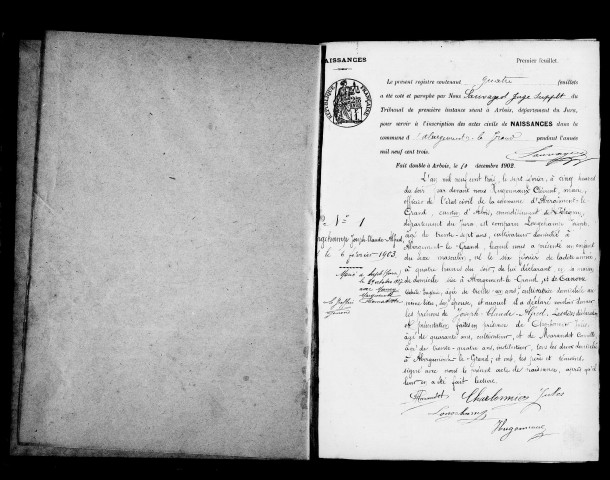 NAISSANCES
Premier feuillet.
Le présent registre contenant quatre feuillets
a été coté et paraphé par Nous Sauvaget Juge Suppl
du Tribunal de première instance séant à Arbois, département du Jura,
pour servir à l'inscription des actes civils de NAISSANCES dans la
commune d'Abergement-le-Grand pendant l'année
mil neuf cent trois.
Fait double à Arbois, le décembre 1902.
RÉPUBLIQUE FRANÇAISE
N° 1
Longchamp Joseph-Claude-Alfred,
le 6 février 1903
Marié à
le octobre
avec
Marguerite
L'an mil neuf cent trois, le sept février, à cinq heures
du soir, par devant nous Clément, maire,
officier de l'état civil de la commune d'Abergement-le-
Grand, canton d'Arbois, arrondissement de Poligny,
département du Jura, est comparu Longchamp
âgé de trente-sept ans, cultivateur domicilié à
Abergement-le-Grand, lequel nous a présenté un enfant
du sexe masculin, né le six février de la dite année,
à quatre heures du soir, de lui déclarant en sa maison
de domicile sise à Abergement-le-Grand, et de
âgée de ans, cultivatrice domiciliée au
même lieu, son épouse, et auquel il a déclaré vouloir donner
les prénoms de Joseph-Claude-Alfred. Les dites déclaration
et présentation faites en présence de Jules
âgé de quarante ans, cultivateur, et de
âgé de trente-quatre ans, instituteur, tous les deux domiciliés
à Abergement-le-Grand; et ont, les père et témoins,
signé avec nous le présent acte de naissance, après qu'il
leur en a été fait lecture.
Jules
Longchamp